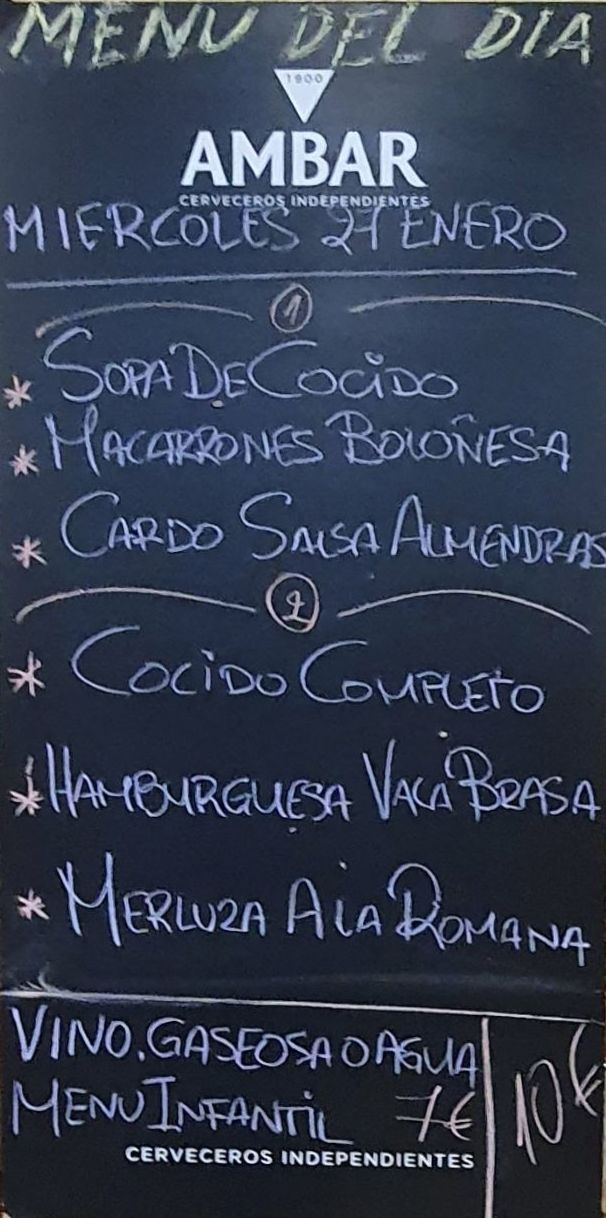 MENU DEL DIA
1900
AMBAR
CERVECEROS INDEPENDIENTES
MIERCOLES 27 ENERO
1
* SOPA DE COCIDO
* MACARRONES BOLOÑESA
* CARDO SALSA ALMENDRAS
2
* COCIDO COMPLETO
* HAMBURGUESA VACA BRASA
* MERLUZA A LA ROMANA
VINO. GASEOSA O AGUA
MENU INFANTIL 7€
10€
CERVECEROS INDEPENDIENTES